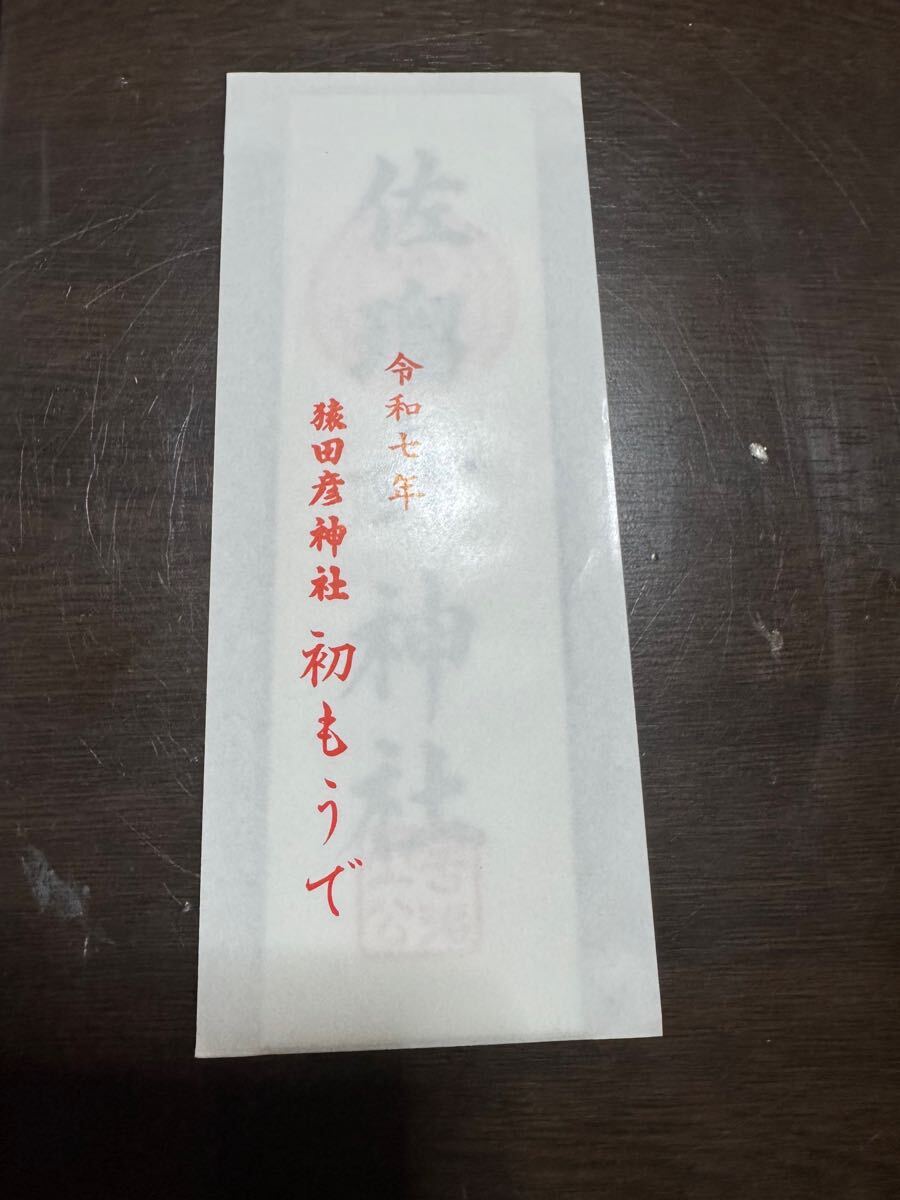 令和七年
猿田彦神社 初もうで
佐
神社